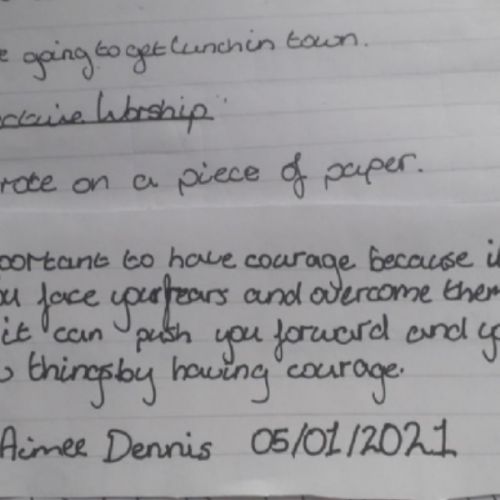 e going to get lunch in town.
Worship
rote on a piece of paper.
portant to have courage because i
ou face your fears and overcome them
it can push you forward and yo
things by having courage.
Aimee Dennis 05/01/2021